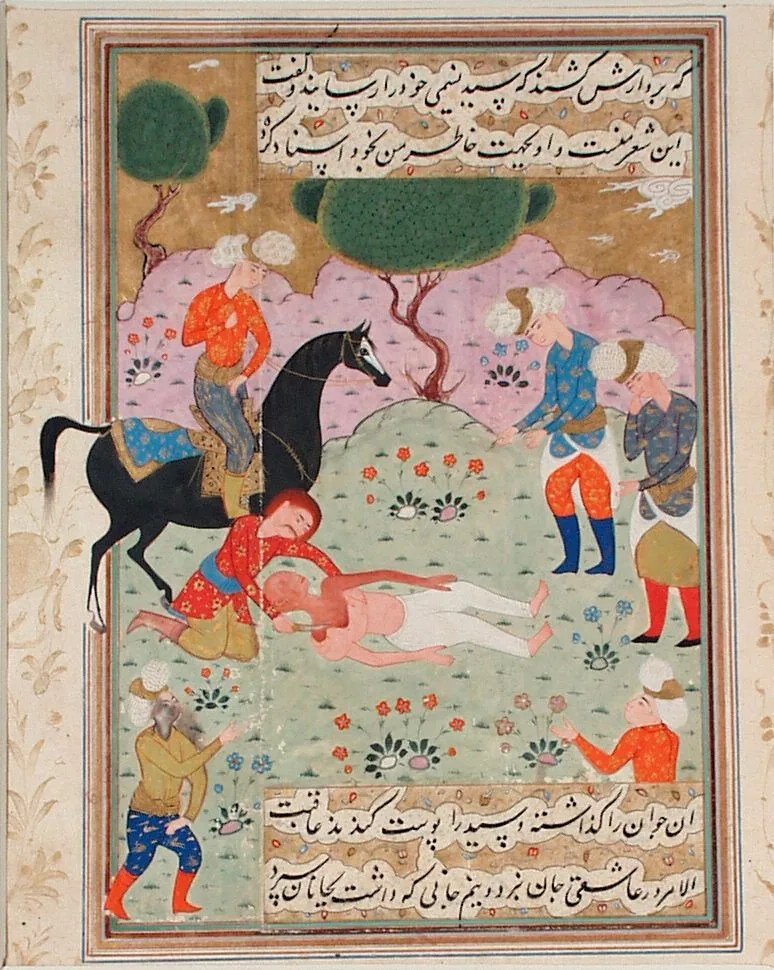 که بردارش کشند که سید نسیمی خود را رسانید و گفت
این شعر منست و او بجهت خاطر من بخود اسناد کرد
ان جوان را گذاشته و سید را پوست کندند عاقبت
الامر در عاشقی جان نبرد و نیم جانی که داشت بجانان سپرد